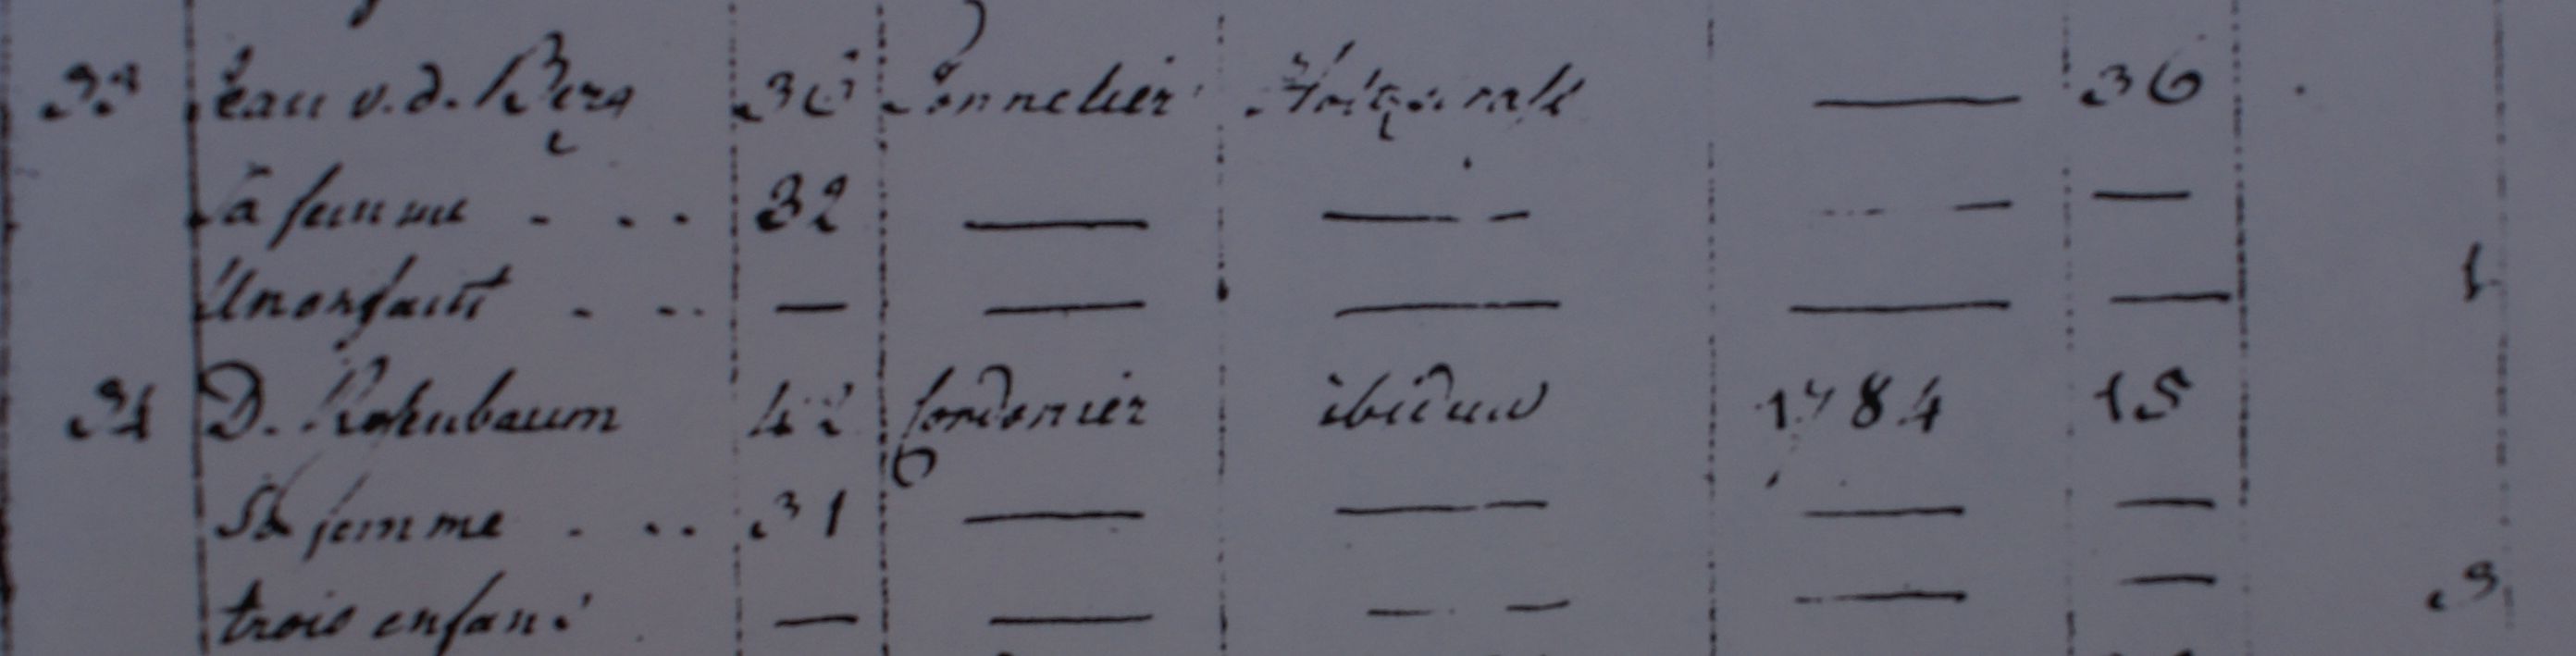 33 Jean v. d. Berg 36 Tonnelier — 36
sa femme - - - 32 — — — —
Un enfant - - - — — — — — 1
34 D. 42 Cordonier ibidem 1784 15
Sa femme - - - 31 — — — —
trois enfans — — — — — 3